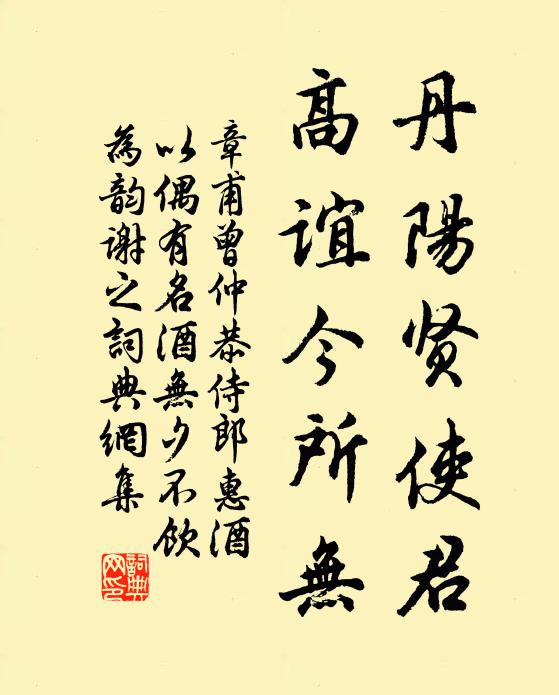 丹陽贤使君
高誼今所無
章甫曾仲恭侍郎惠酒
以偶有名酒無夕不飲
為韵谢之詞典網集
詞典網印